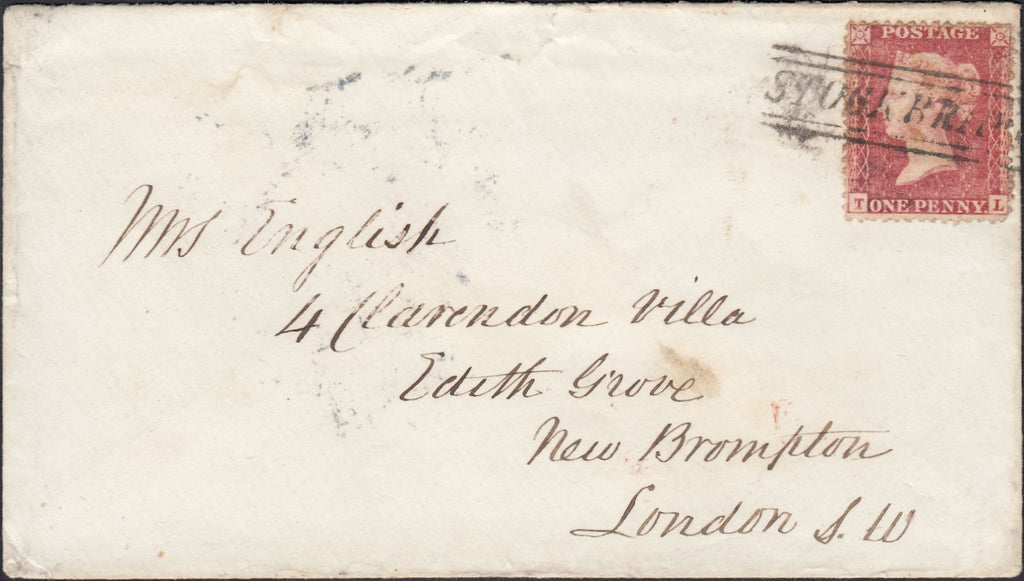 POSTAGE
STOCKBRI
T ONE PENNY L
Mrs English
4 Clarendon Villa
Edith Grove
New Brompton
London S.W